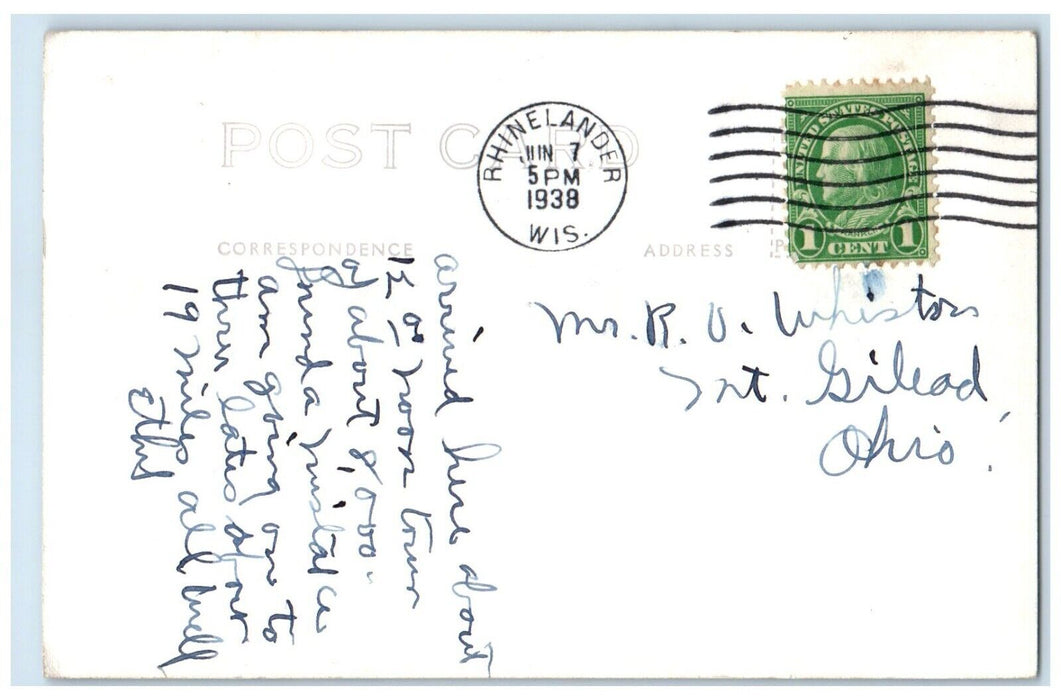 POST CARD
RHINELANDER
JUN 7
5 PM
1938
WIS.
UNITED STATES POSTAGE
FRANKLIN
1 CENT 1
CORRESPONDENCE
ADDRESS
arrived here about
12 00 noon town
of about 8,000.
am going on to
three lakes
19 miles all well
Ethel
Mr. R. O. Whiston
Mt. Gilead,
Ohio.